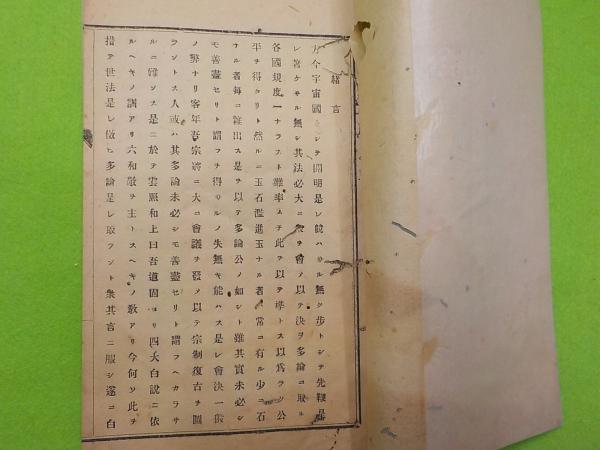 緒言
方今宇宙國トシテ開明是レ競ハサル無ク步トシテ先鞭是
レ著ケサル無シ其法必大ニ衆ヲ會ノ以テ決ヲ多論ニ取ル
各國規度一ナラスト雖率ムチ此ヲ以テ準トス以爲ラク公
平ヲ得タリト然ルニ玉石混進玉ナル者ハ常ニ有ル少ニ石
ナル者每ニ雜出ス是ヲ以テ多論公ノ如シト雖其實未必シ
モ善盡セリト謂フヲ得サルノ失無キ能ハス是レ會決一偏
ノ弊ナリ客年吾宗將ニ大ニ會議ヲ發メ以テ宗制復古ヲ圖
ラントス人或ハ其多論未必シモ善盡セリト謂フヘカラサ
ルニ難ンス是ニ於テ雲照和上曰吾道固ヨリ四大白說ニ依
ルヘキノ訓アリ六和敬ヲ主トスヘキノ敎アリ今何ソ此ヲ
措テ世法是レ倣ヒ多論是レ取ラント衆其言ニ服シ遂ニ白